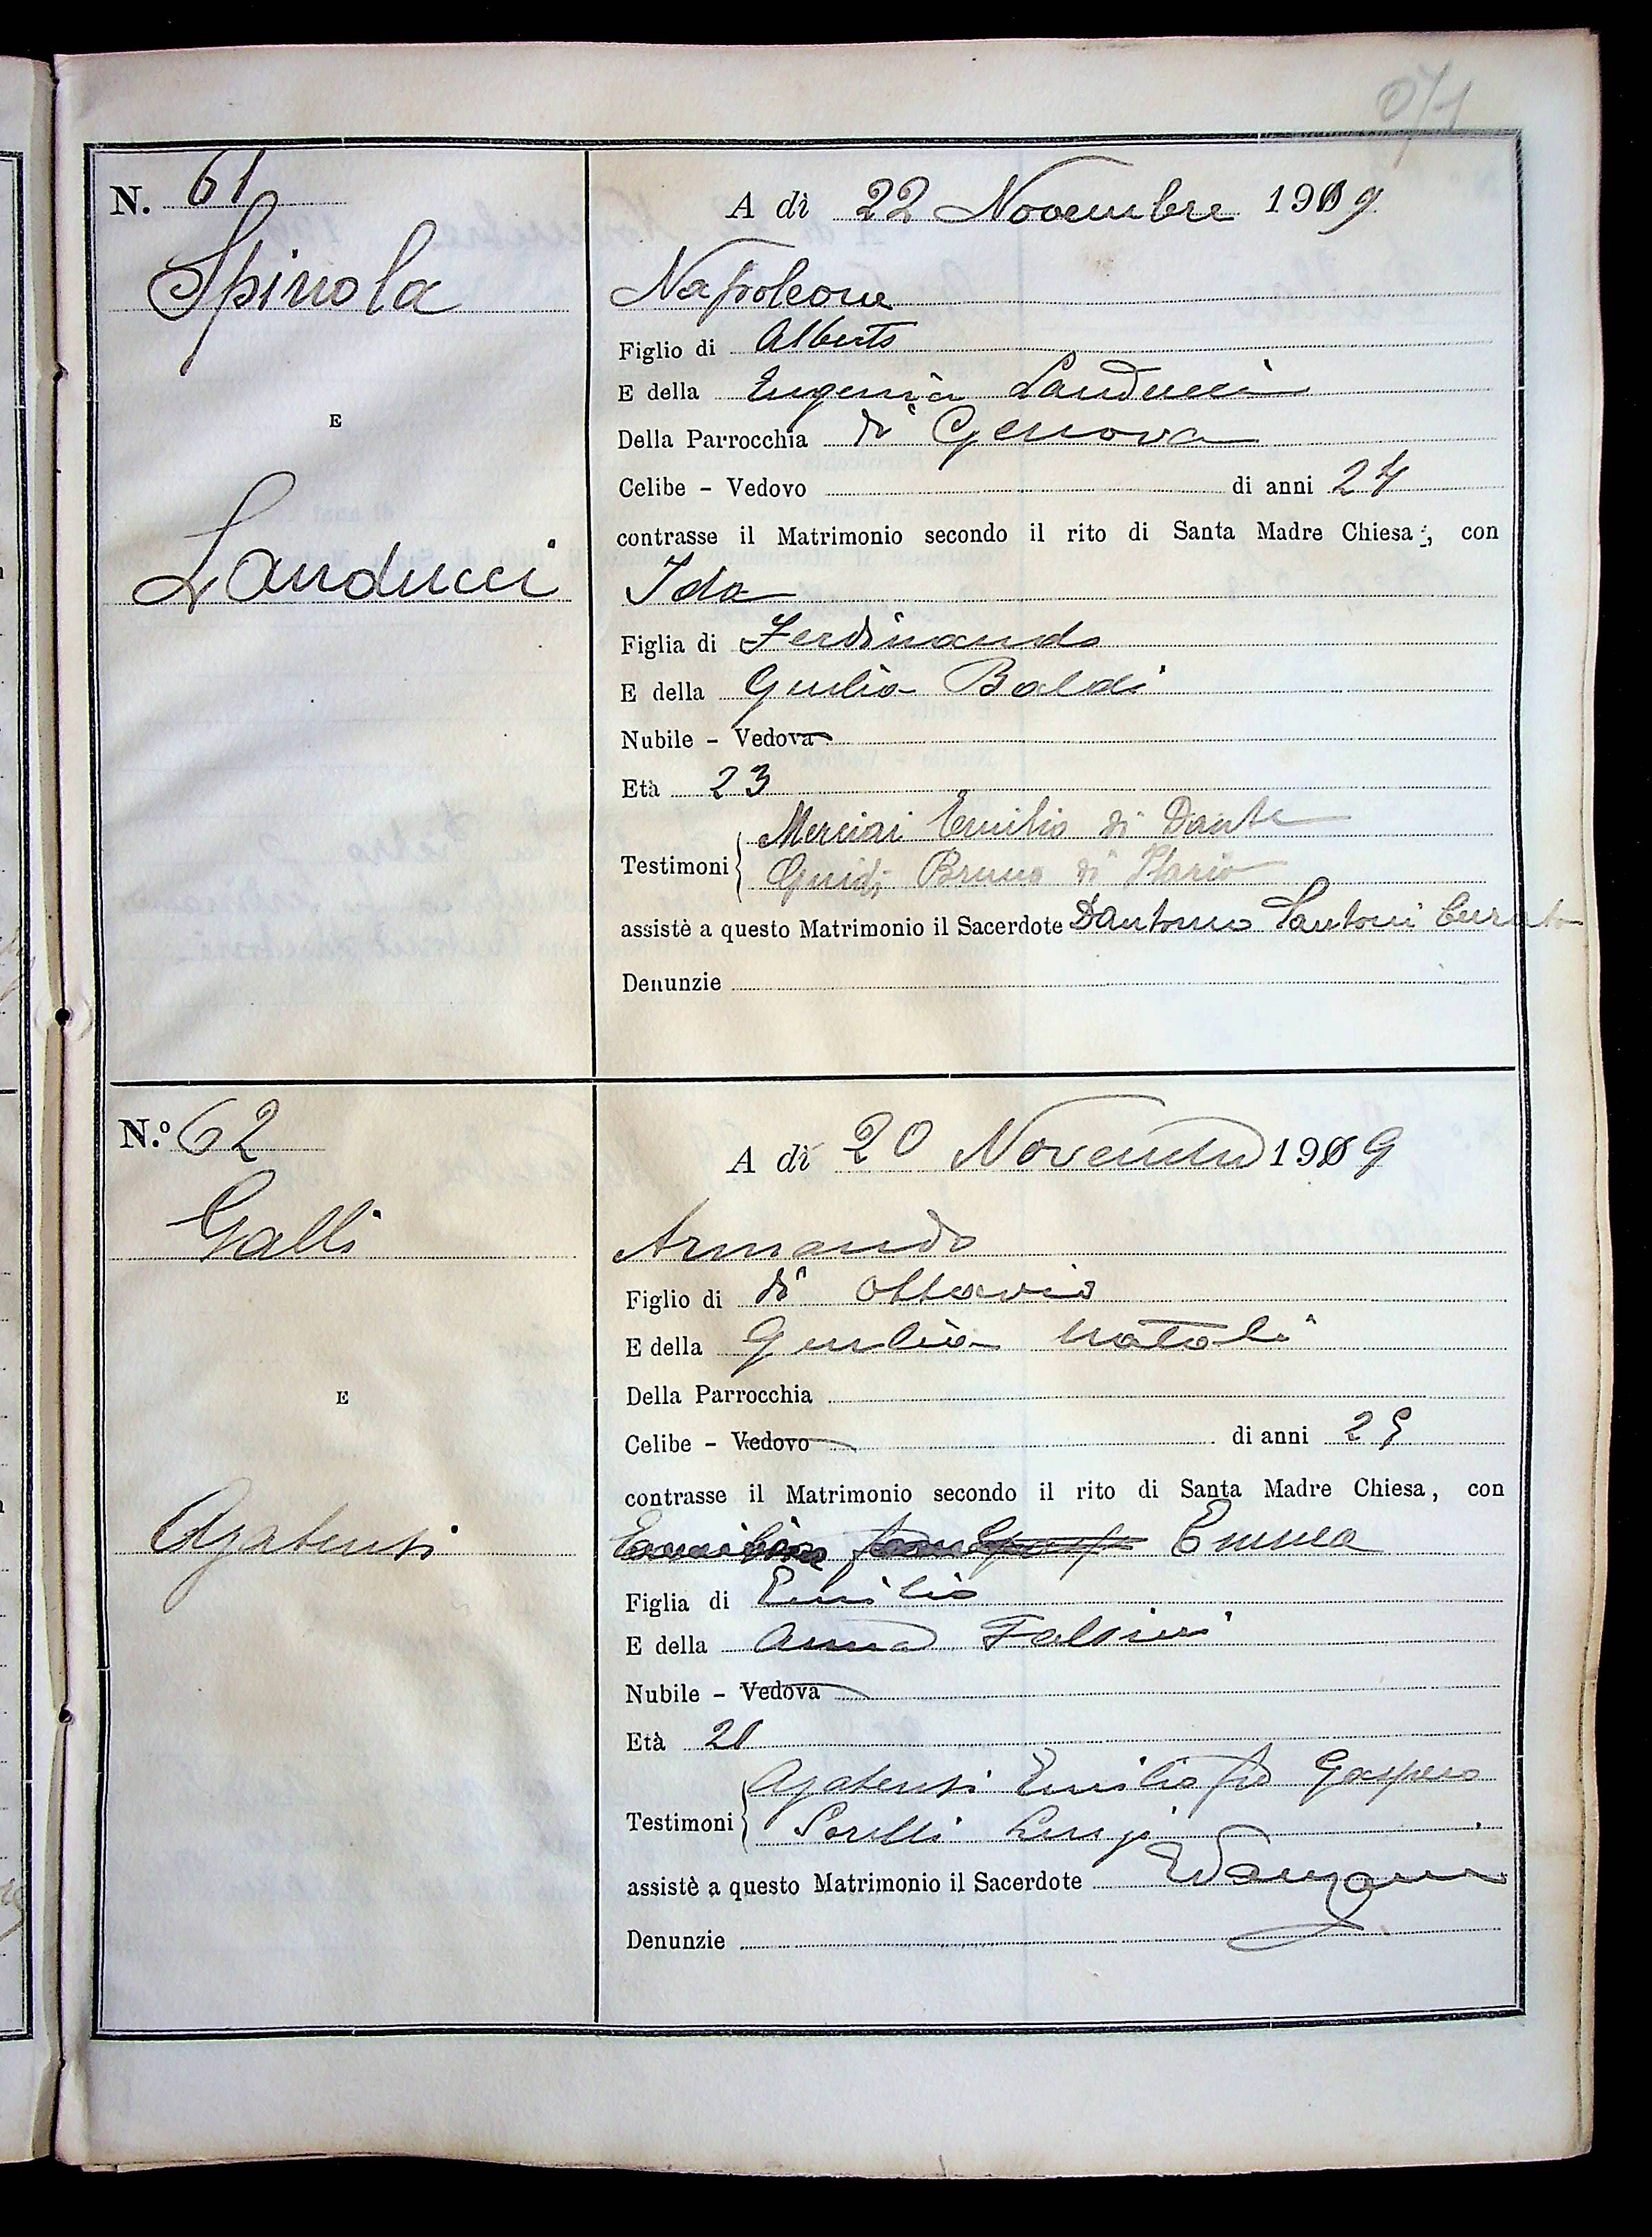 N. 61
A dì 22 Novembre 1919
Spinola
Napoleone
Figlio di Alberto
E della Eugenia Landucci
E
Della Parrocchia di Genova
Celibe - Vedovo di anni 24
contrasse il Matrimonio secondo il rito di Santa Madre Chiesa, con
Landucci
Ida
Figlia di Ferdinando
E della Giulia Baldi
Nubile - Vedova
Età 23
Merciai Emilio di Dante
Testimoni
Guidi Bruno di Ilario
assistè a questo Matrimonio il Sacerdote D Antonio Santoni Curato
Denunzie
N.º 62
A dì 20 Novembre 1919
Galli
Armando
Figlio di di Ottavio
E della Giulia Natali
E
Della Parrocchia
Celibe - Vedovo di anni 29
contrasse il Matrimonio secondo il rito di Santa Madre Chiesa, con
Agatensi
Emma
Figlia di Emilio
E della Anna Falsini
Nubile - Vedova
Età 21
Agatensi Emilio fu Gaspero
Testimoni
Sorelli Luigi
assistè a questo Matrimonio il Sacerdote
Denunzie